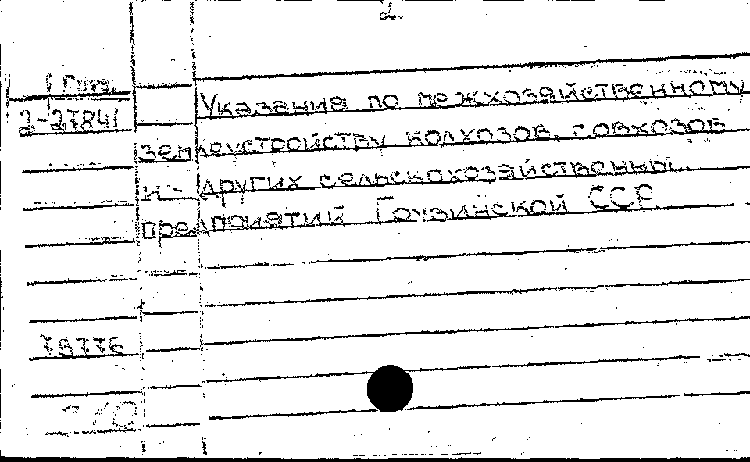 2.
2-27841
Указания по межхозяйственному
землеустройству колхозов, совхозов
и других сельскохозяйственных
предприятий Грузинской ССР.